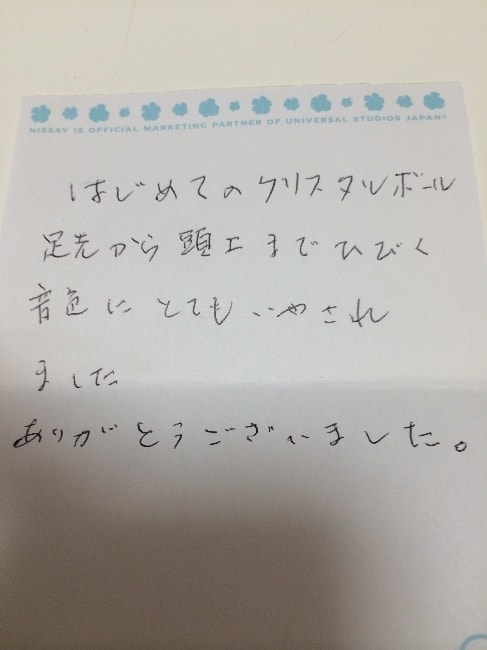 NISSAY IS OFFICIAL MARKETING PARTNER OF UNIVERSAL STUDIOS JAPAN®
はじめてのクリスタルボール
足先から頭上までひびく
音色にとてもいやされ
ました
ありがとうございました。